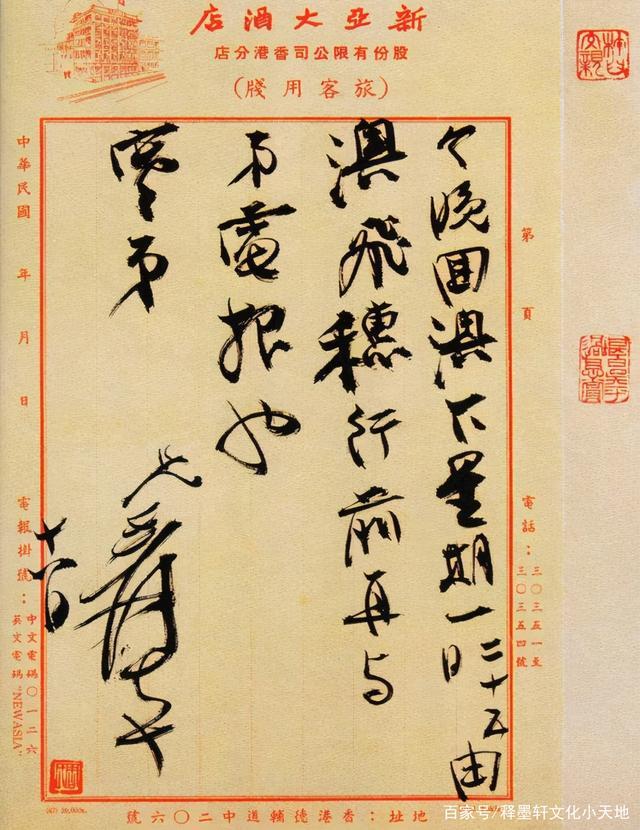 新亞大酒店
股份有限公司香港分店
(旅客用牋)
第 頁
電話：三〇三五一至
三〇三五四號
今晚囬澳下星期一二十五日由
澳飛穗行前再与
弟電报也
弟
兄爰
中華民國 年 月 日
電報掛號：中文電碼〇一二六
英文電碼"NEWASIA"
地址：香港德輔道中二〇六號
百家号/释墨轩文化小天地